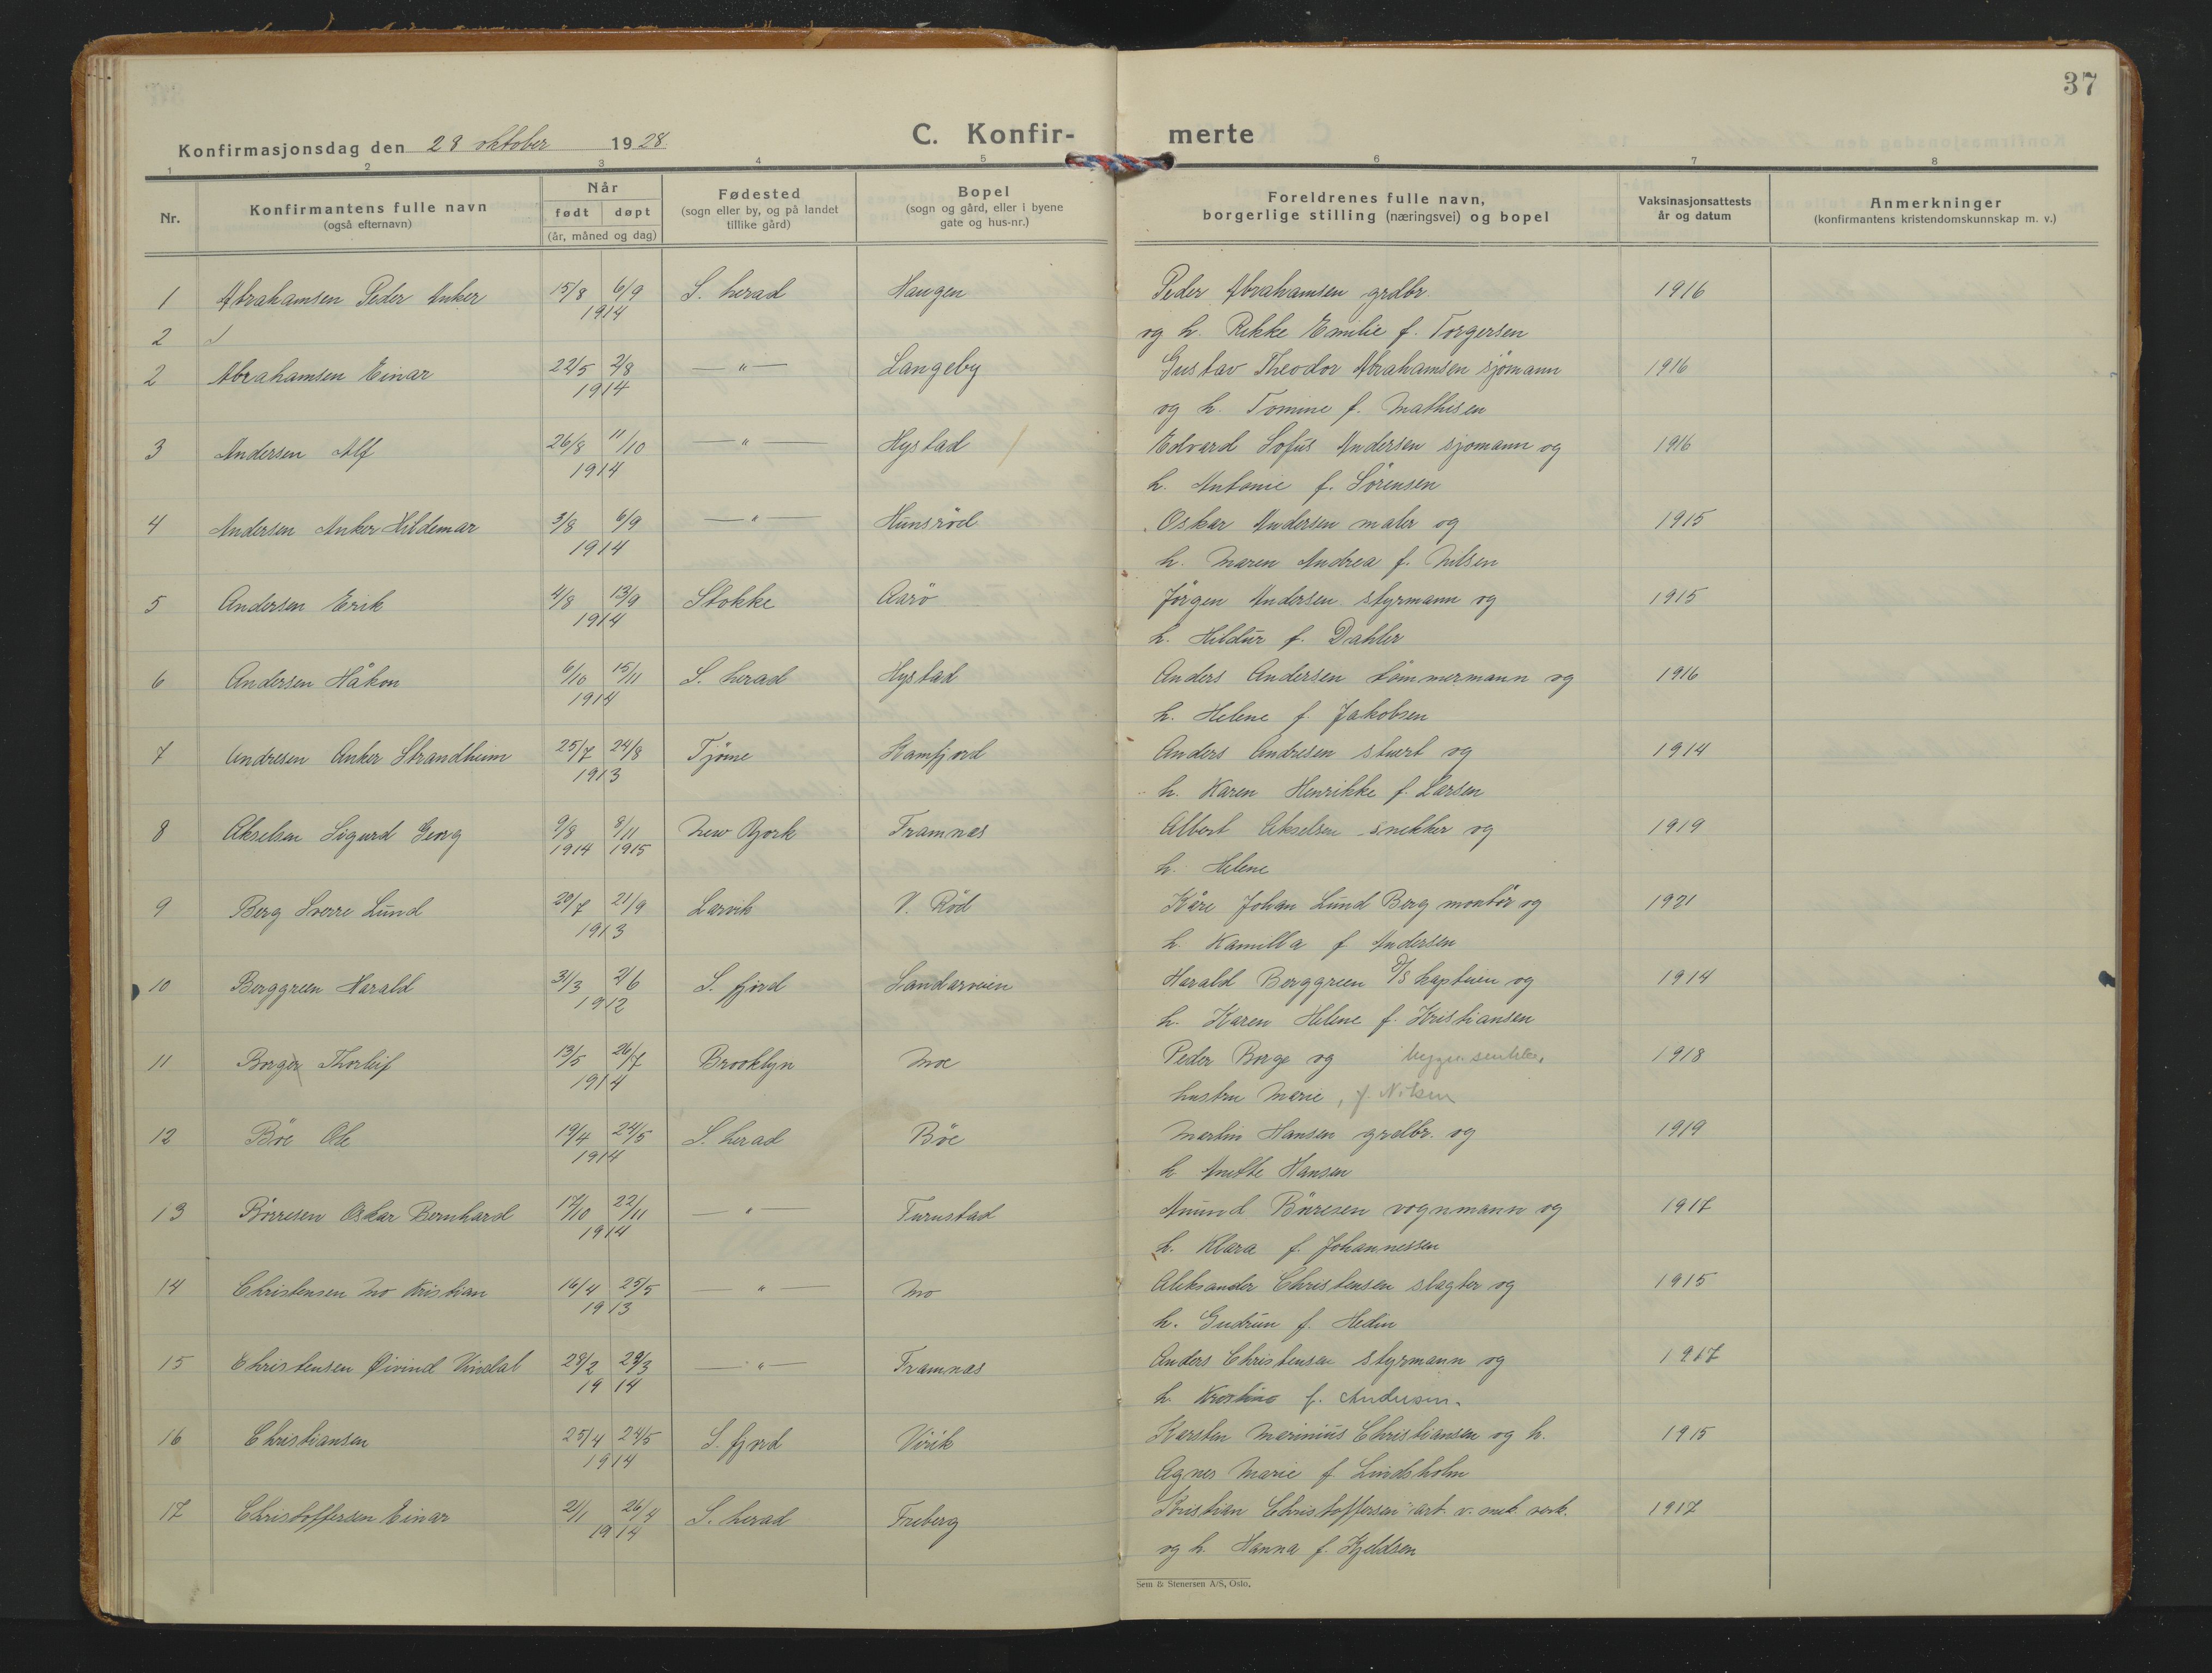 37
Konfirmasjonsdag den 28 oktober 1928.
C. Konfir-
merte
1 2 3 4 5 6 7 8
Nr. Konfirmantens fulle navn (også efternavn) Når født døpt (år, måned og dag) Fødested (sogn eller by, og på landet tillike gård) Bopel (sogn og gård, eller i byene gate og hus-nr.) Foreldrenes fulle navn, borgerlige stilling (næringsvei) og bopel Vaksinasjonsattests år og datum Anmerkninger (konfirmantens kristendomskunnskap m. v.)
1 Abrahamsen Peder Anker 15/8 6/9 1914 S. herad Haugen Peder Abrahamsen grdbr. 1916
2 og h. Rikke Emilie f. Torgersen
2 Abrahamsen Einar 22/5 2/8 1914 —"— Langeby Gustav Theodor Abrahamsen sjømann 1916
og h. Tomine f. Mathisen
3 Andersen Alf 26/8 11/10 1914 —"— Hystad Edvard Lofús Andersen sjømann og 1916
h. Antonie f. Sörensen
4 Andersen Anker Hildemar 3/8 6/9 1914 —"— Hunsröd Oskar Andersen maler og 1915
h. Maren Andrea f. Nilsen
5 Andersen Erik 4/8 13/9 1914 Stokke Aarö Jörgen Andersen styrmann og 1915
h. Hildur f. Dahler
6 Andersen Håkon 6/10 15/11 1914 S. herad Hystad Anders Andersen tömmermann og 1916
h. Helene f. Jakobsen
7 Andresen Anker Strandheim 25/7 24/8 1913 Tjöme Kamfjord Anders Andresen stuert og 1914
h. Karen Henrikke f. Larsen
8 Akselsen Sigurd Georg 9/8 1914 8/11 1915 New York Framnes Albert Akselsen snekker og 1919
h. Helene
9 Berg Sverre Lund 20/7 21/9 1913 Larvik V. Röd Kåre Johan Lund Berg montör og 1921
h. Kamilla f Andersen
10 Berggreen Harald 31/3 2/6 1912 S. fjord Sandarveien Harald Berggreen D/S kaptein og 1914
h. Karen Helene f. Kristiansen
11 Borger Thorleif 13/5 26/7 1914 Brooklyn Moe Peder Borge og bygn. snekker, 1918
hustru Marie, f. Nilsen
12 Böe Ole 19/4 24/5 1914 S. herad Böe Martin Hansen grdbr. og 1919
h Anette Hansen
13 Börresen Oskar Bernhard 17/10 22/11 1914 —"— Furustad Amund Böresen vognmann og 1917
h. Klara f. Johannessen
14 Christensen Mo Kristian 16/4 25/5 1913 —"— Mo Aleksander Christensen slagter og 1915
h. Gudrun f. Hedin
15 Christensen Øivind Vindal 28/2 29/3 1914 —"— Framnæs Anders Christensen styrmann og 1917
h. Kristine f. Andersen.
16 Christiansen 25/4 24/5 1914 S. fjord Virik Karsten Marinius Christiansen og h. 1915
Agnes Marie f. Lindsholm
17 Christoffersen Einar 2/1 26/4 1914 S. herad Freberg Kristian Christoffersen arb. v. mek. verk. 1917
og h. Hanna f. Kjeldsen
Sem & Stenersen A/S, Oslo.